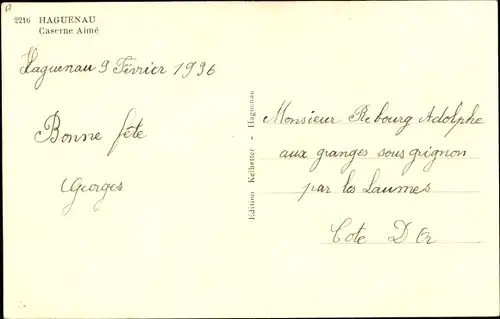 2216 HAGUENAU
Caserne Aimé
Haguenau 9 Février 1936
Bonne fête
Georges
Edition Kelhetter - Haguenau
Monsieur Rebourg Adolphe
aux granges sous grignon
par les Laumes
Cote D'Or